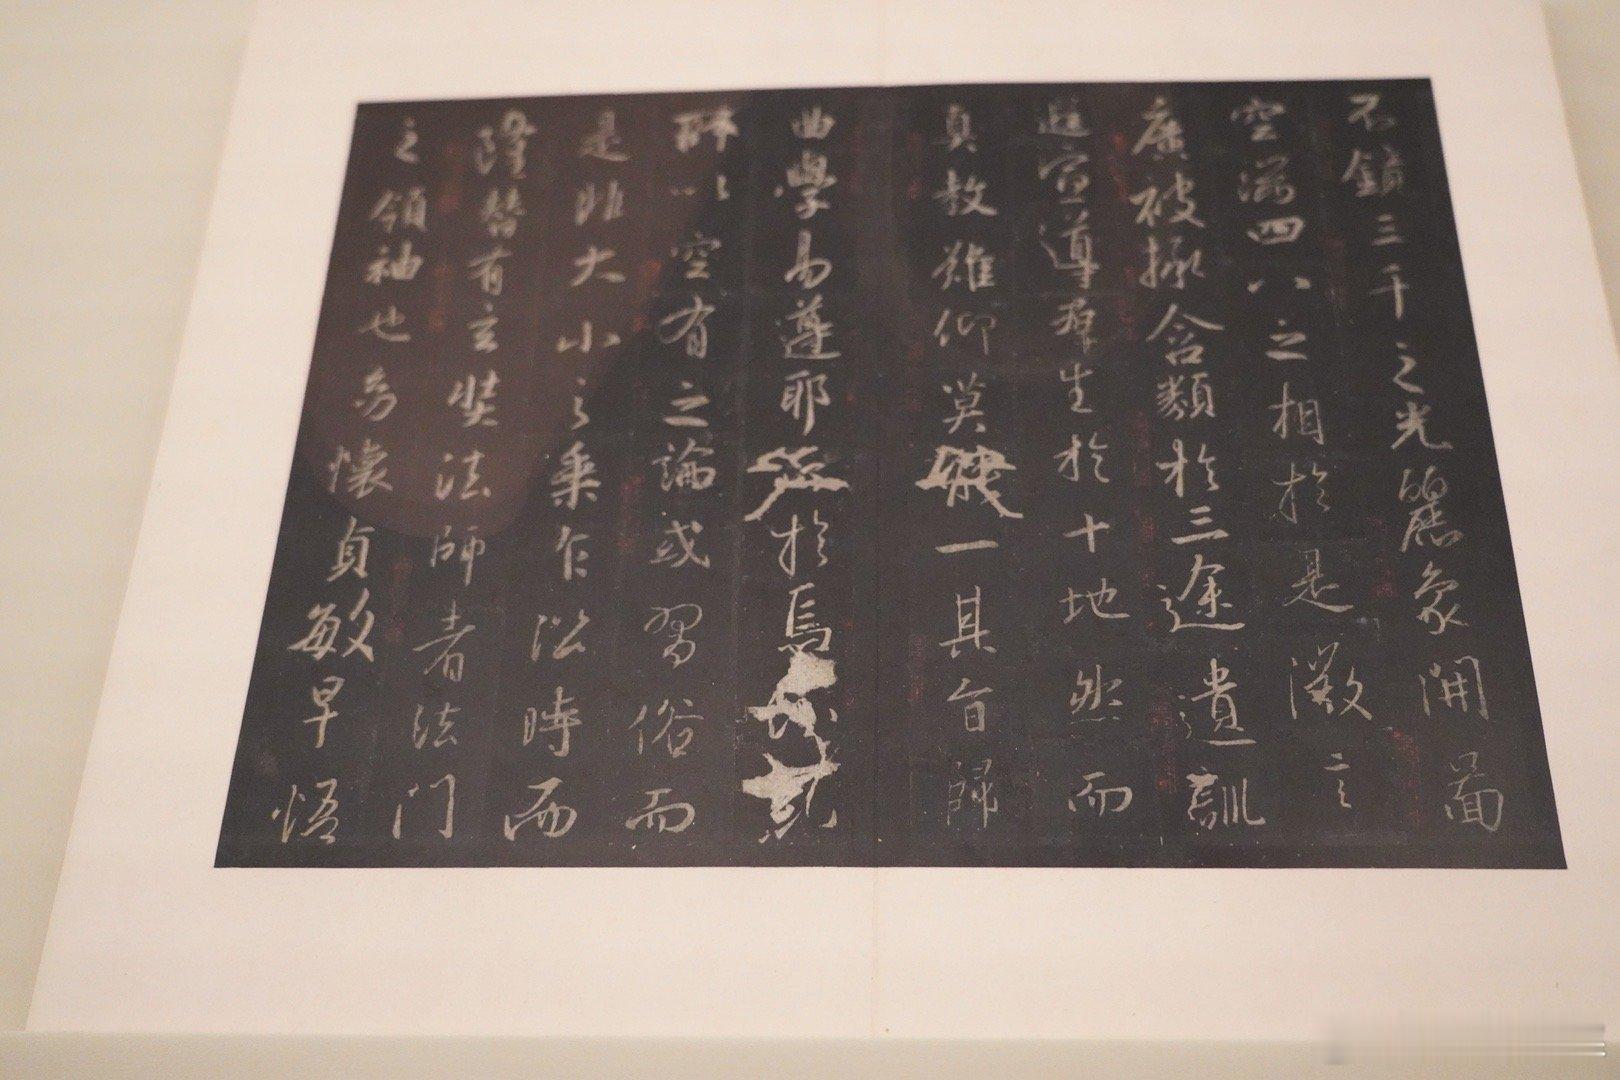 不鏡三千之光麗象開圖
空端四八之相於是微言
廣被拯含類於三途遺訓
遐宣導羣生於十地然而
真教難仰莫能一其旨歸
曲學易遵耶於焉
所以空有之論或習俗而
是非大小之乘乍沿時而
隆替有玄奘法師者法門
之領袖也幼懷貞敏早悟